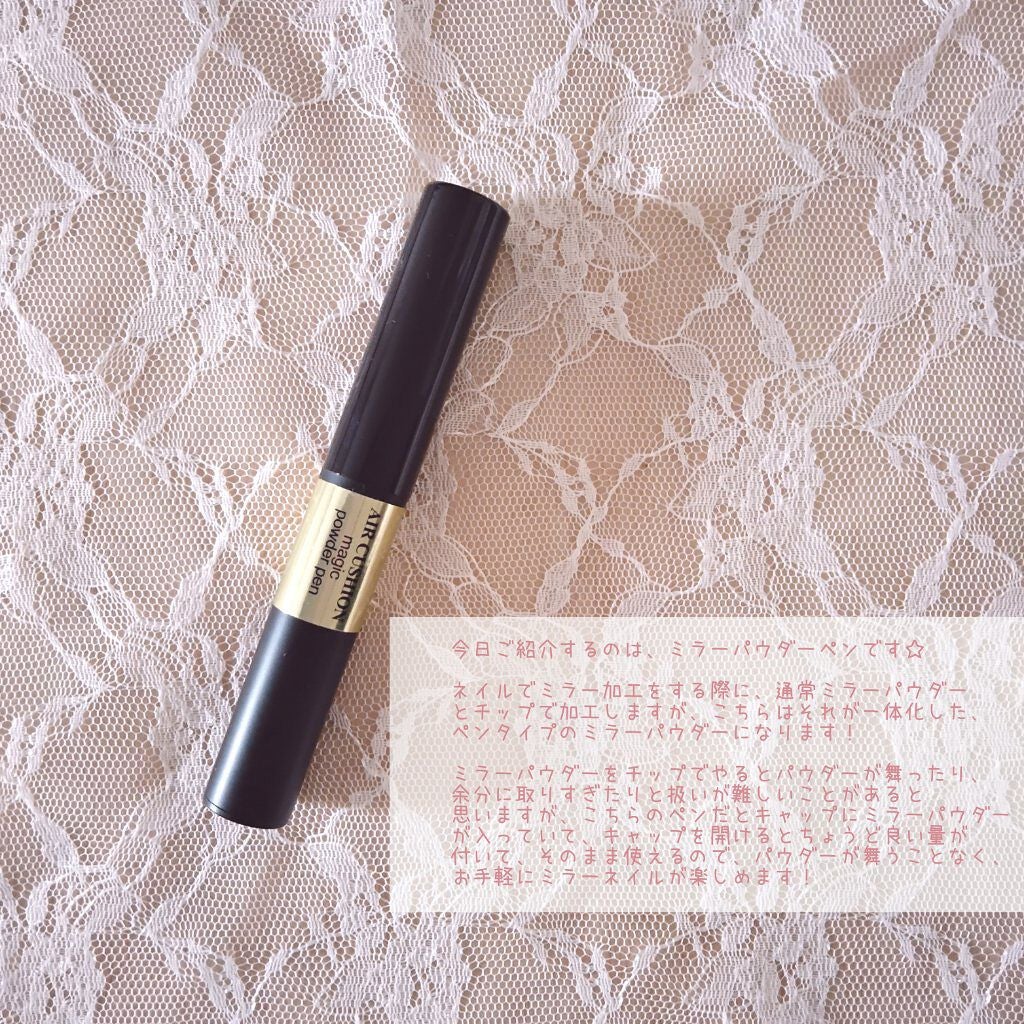 AIR CUSHION
magic
powder pen
今日ご紹介するのは、ミラーパウダーペンです☆
ネイルでミラー加工をする際に、通常ミラーパウダー
とチップで加工しますが、こちらはそれが一体化した、
ペンタイプのミラーパウダーになります！
ミラーパウダーをチップでやるとパウダーが舞ったり、
余分に取りすぎたりと扱いが難しいことがあると
思いますが、こちらのペンだとキャップにミラーパウダー
が入っていて、キャップを開けるとちょうど良い量が
付いて、そのまま使えるので、パウダーが舞うことなく、
お手軽にミラーネイルが楽しめます！